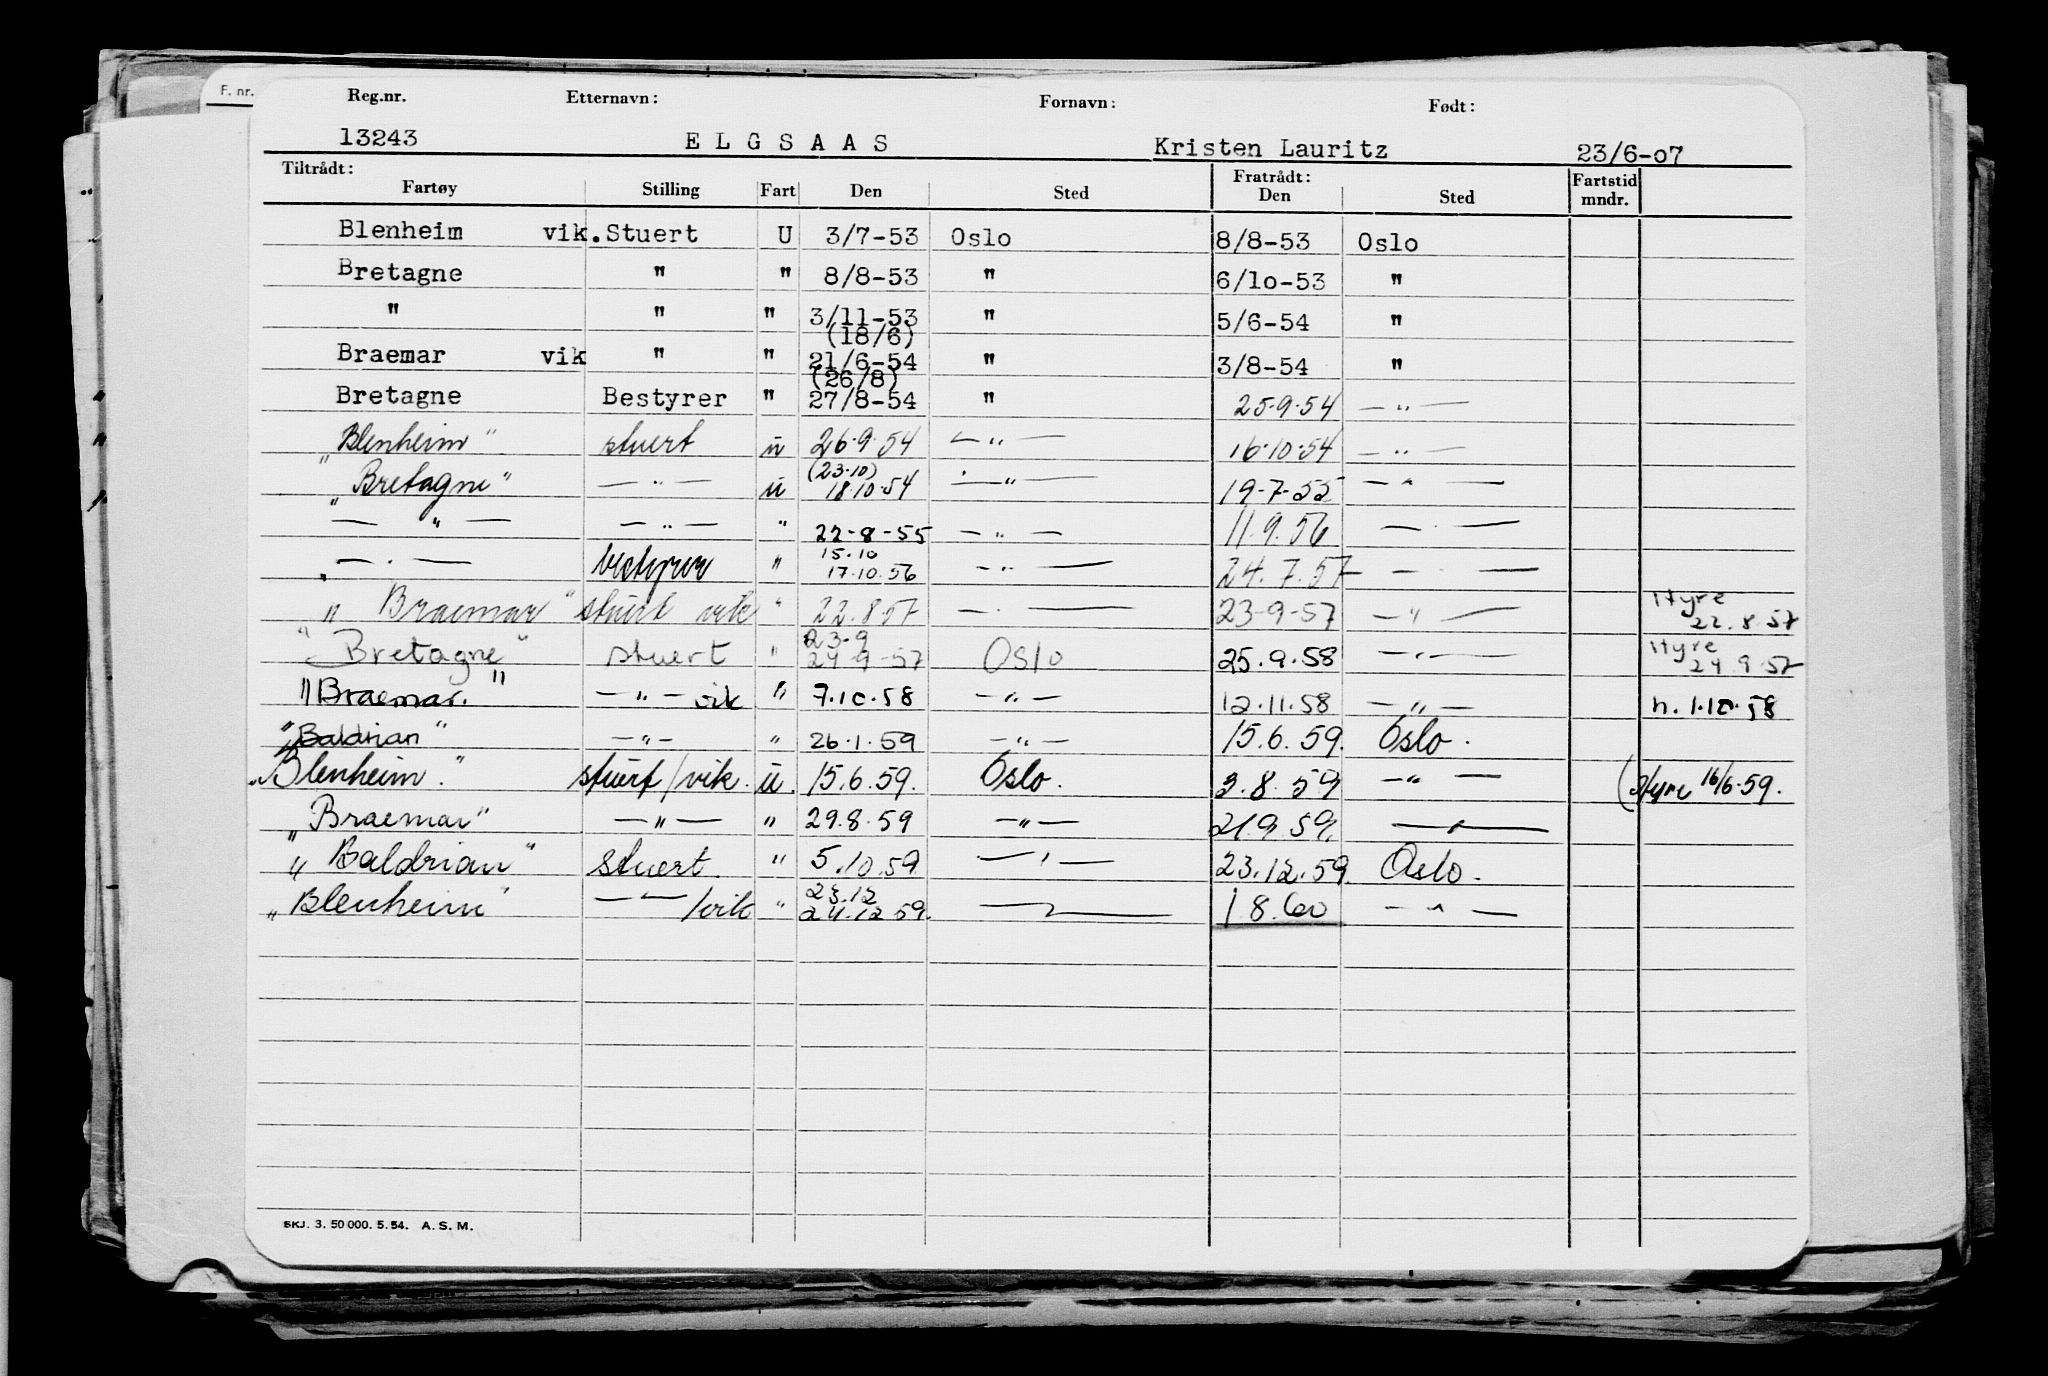 F. nr.
Reg.nr. Etternavn: Fornavn: Født:
13243 ELGSAAS Kristen Lauritz 23/6-07
Tiltrådt: Fratrådt:
Fartøy Stilling Fart Den Sted Den Sted Fartstid mndr.
Blenheim vik. Stuert U 3/7-53 Oslo 8/8-53 Oslo
Bretagne " " 8/8-53 " 6/10-53 "
" " " 3/11-53 " 5/6-54 "
(18/6)
Braemar vik " " 21/6-54 " 3/8-54 "
(26/8)
Bretagne Bestyrer " 27/8-54 " 25.9.54 — " —
"Blenheim" stuert u 26.9.54 — " — 16.10.54 — " —
(23.10)
"Bretagne" — " — u 18.10.54 — " — 19-7-55 — " —
— " — — " — " 22-8-55 — " — 11.9.56 — " —
15.10
— " — bestyrer " 17.10.56 — " — 24.7.57 — " —
"Braemar" stuert vik " 22.8.57 — " — 23-9-57 — " — styre 22.8.57
23-9
"Bretagne" stuert " 24-9-57 Oslo 25.9.58 — " — styre 24.9.57
"Braemar." — " — vik " 7.10.58 — " — 12.11.58 — " — h. 1.10.58
"Baldrian" — " — " 26.1.59 — " — 15.6.59. Oslo.
"Blenheim." stuert/vik. u. 15.6.59. Oslo. 3.8.59 — " — (styre 16/6.59.
"Braemar" — " — " 29.8.59 — " — 21.9.59. — " —
"Baldrian" stuert. " 5.10.59 — " — 23.12.59. Oslo.
23.12
"Blenheim" — " — /vik " 24.12.59. — " — 1.8.60 — " —
SKJ. 3. 50 000. 5. 54. A. S. M.